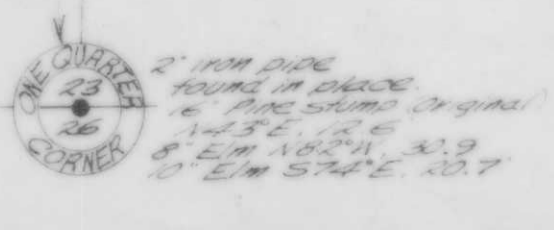 ONE QUARTER
23
26
CORNER
2" iron pipe
found in place.
16" Pine Stump Original
N43°E. 12.6
8" Elm N82°W. 30.9
10" Elm S74°E. 20.7